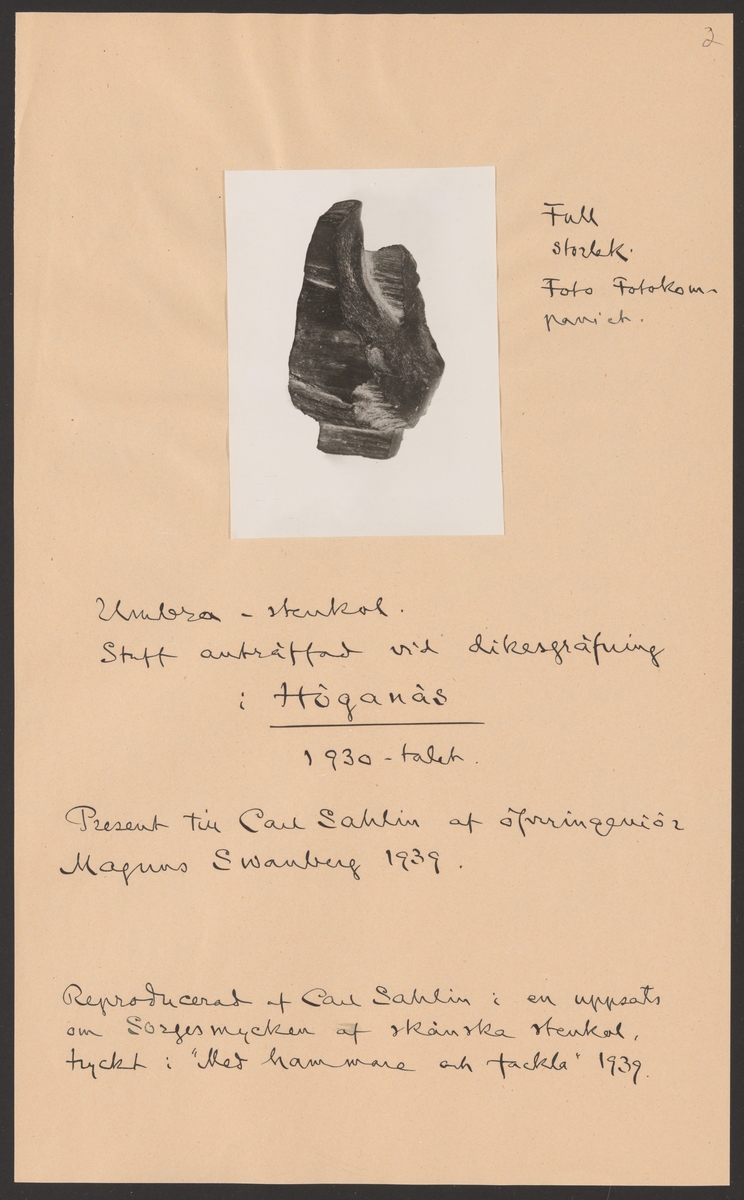 2
Full
storlek.
Foto Fotokom-
paniet.
Umbra - stenkol.
Stuff anträffad vid dikesgräfning
i Höganäs
1930-talet.
Present till Carl Sahlin af öfveringeniör
Magnus Swanberg 1939.
Reproducerad af Carl Sahlin i en uppsats
om Sorgesmycken af skånska stenkol,
tryckt i "Med hammare och fackla" 1939.